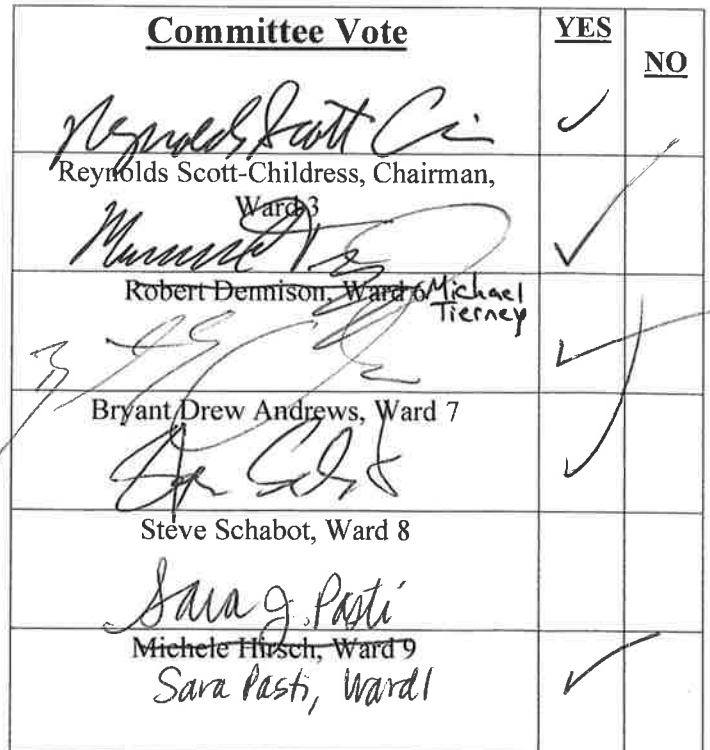 Committee Vote YES NO
Reynolds Scott Ci ✓
Reynolds Scott-Childress, Chairman,
Ward 3
✓
Robert Dennison, Ward 6 Michael
Tierney
✓
Bryant Drew Andrews, Ward 7
✓
Steve Schabot, Ward 8
Sara J. Pasti
Michele Hirsch, Ward 9
Sara Pasti, Ward 1 ✓